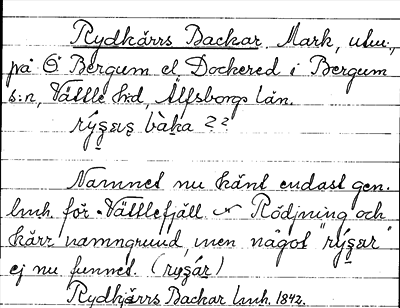 Rydkärrs Backar. Mark, utm.,
på Ö Bergum el. Dockered i Bergum
s:n, Vättle h:d, Älfsborgs län.
bàka ??
Namnet nu känt endast gen.
lmh. för Vättlefjäll Rödjning och
kärr namngrund, men något
ej nu funnet.
Rydkjärrs Backar lmh. 1842.